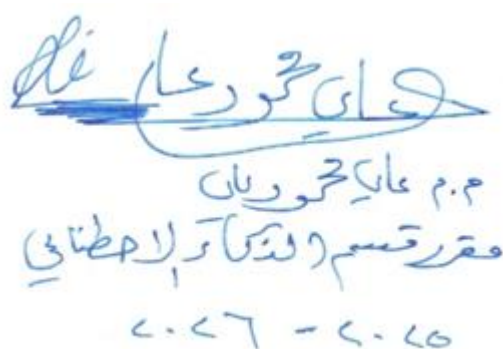 علي محمود علي
م.م علي محمود علي
مقرر قسم الذكاء الاصطناعي
٢٠٢٥ - ٢٠٢٦